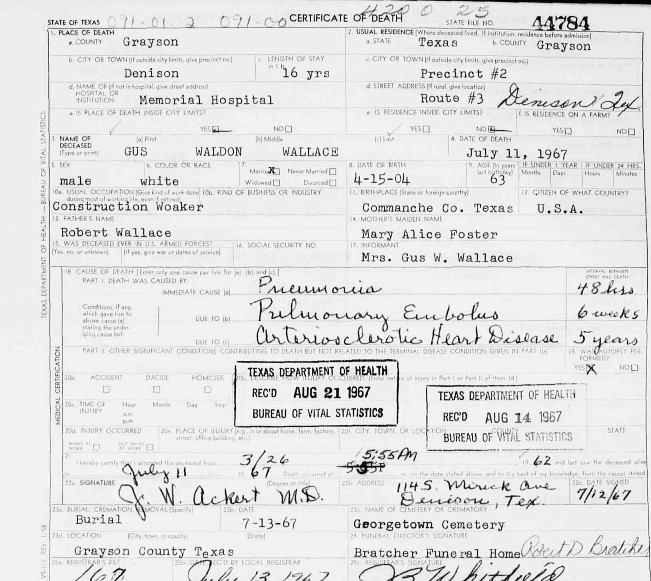 STATE OF TEXAS 091-01.2 091-00 CERTIFICATE OF DEATH 420 0 25 STATE FILE NO. 44784
1. PLACE OF DEATH 2. USUAL RESIDENCE (Where deceased lived. If institution: residence before admission)
a. COUNTY Grayson a. STATE Texas b. COUNTY Grayson
b. CITY OR TOWN (If outside city limits, give precinct no.) c. LENGTH OF STAY c. CITY OR TOWN (If outside city limits, give precinct no.)
Denison 16 yrs Precinct #2
d. NAME OF (If not in hospital, give street address) HOSPITAL OR INSTITUTION d. STREET ADDRESS (If rural, give location)
Memorial Hospital Route #3 Denison Tex.
e. IS PLACE OF DEATH INSIDE CITY LIMITS? e. IS RESIDENCE INSIDE CITY LIMITS? f. IS RESIDENCE ON A FARM?
YES NO YES NO YES NO
3. NAME OF DECEASED (Type or print) (a) First (b) Middle (c) Last 4. DATE OF DEATH
GUS WALDON WALLACE July 11, 1967
5. SEX 6. COLOR OR RACE 7. Married X Never Married Widowed Divorced 8. DATE OF BIRTH 9. AGE (In years last birthday) IF UNDER 1 YEAR IF UNDER 24 HRS.
Months Days Hours Minutes
male white 4-15-04 63
10a. USUAL OCCUPATION (Give kind of work done during most of working life, even if retired) 10b. KIND OF BUSINESS OR INDUSTRY 11. BIRTHPLACE (State or foreign country) 12. CITIZEN OF WHAT COUNTRY?
Construction Woaker Commanche Co. Texas U.S.A.
13. FATHER'S NAME 14. MOTHER'S MAIDEN NAME
Robert Wallace Mary Alice Foster
15. WAS DECEASED EVER IN U.S. ARMED FORCES? 16. SOCIAL SECURITY NO. 17. INFORMANT
(Yes, no, or unknown) (If yes, give war or dates of service) Mrs. Gus W. Wallace
18. CAUSE OF DEATH [Enter only one cause per line for (a), (b), and (c).] INTERVAL BETWEEN ONSET AND DEATH
PART I. DEATH WAS CAUSED BY:
IMMEDIATE CAUSE (a) Pneumonia 48 hrs
Conditions, if any, which gave rise to above cause (a), stating the underlying cause last.
DUE TO (b) Pulmonary Embolus 6 weeks
DUE TO (c) Arteriosclerotic Heart Disease 5 years
PART II. OTHER SIGNIFICANT CONDITIONS CONTRIBUTING TO DEATH BUT NOT RELATED TO THE TERMINAL DISEASE CONDITION GIVEN IN PART I(a) 19. WAS AUTOPSY PERFORMED?
YES X NO
20a. ACCIDENT SUICIDE HOMICIDE
TEXAS DEPARTMENT OF HEALTH
REC'D AUG 21 1967
BUREAU OF VITAL STATISTICS
TEXAS DEPARTMENT OF HEALTH
REC'D AUG 14 1967
BUREAU OF VITAL STATISTICS
20c. TIME OF INJURY Hour Month Day Year
a.m.
p.m.
20d. INJURY OCCURRED 20e. PLACE OF INJURY 20f. CITY, TOWN, OR LOCATION COUNTY STATE
I hereby certify that I attended the deceased from 3/26 62 and last saw the deceased alive
July 11 67 Death occurred at 5:55 AM on the date stated above, and to the best of my knowledge, from the causes stated.
22a. SIGNATURE (Degree or title) 22b. ADDRESS 22c. DATE SIGNED
J. W. Ackert M.D. 1145. Mirick Ave Denison, Tex. 7/12/67
23a. BURIAL, CREMATION, REMOVAL (Specify) 23b. DATE 23c. NAME OF CEMETERY OR CREMATORY
Burial 7-13-67 Georgetown Cemetery
23d. LOCATION (City, town, or county) (State) 24. FUNERAL DIRECTOR'S SIGNATURE
Grayson County Texas Bratcher Funeral Home Robert D. Bratcher
25a. REGISTRAR'S FILE 25b. DATE REC'D BY LOCAL REGISTRAR 25c. REGISTRAR'S SIGNATURE
167 July 13 1967
TEXAS DEPARTMENT OF HEALTH — BUREAU OF VITAL STATISTICS
MEDICAL CERTIFICATION